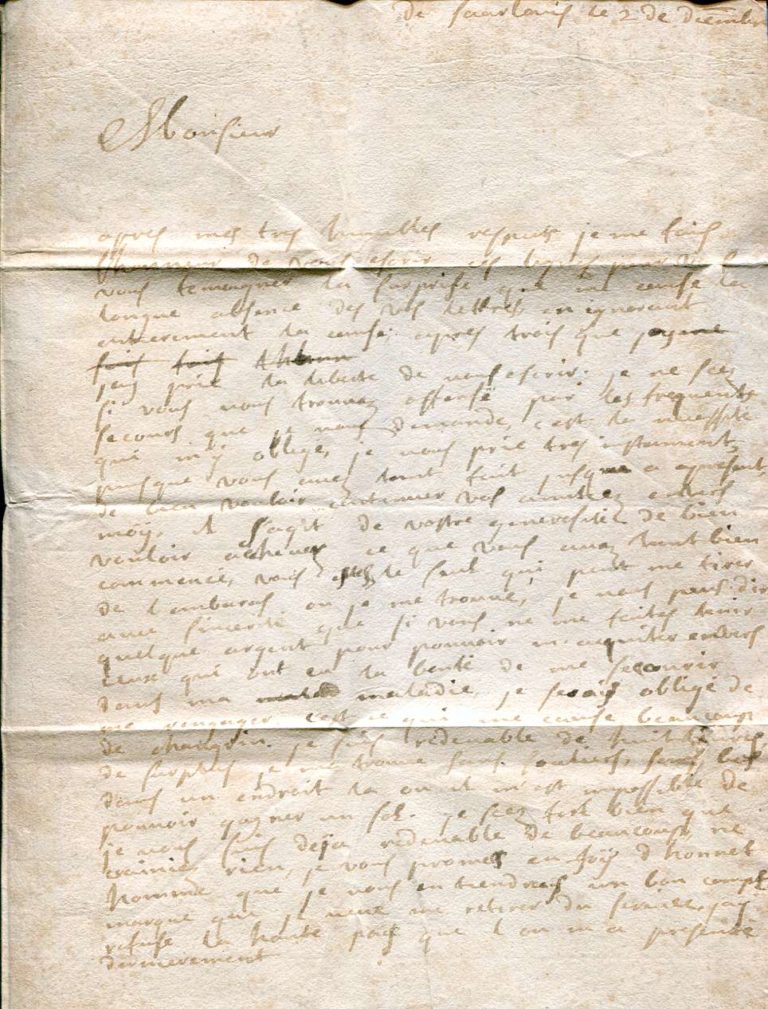 de saarlouis le 2 de decembr
Monsieur
apres mes tres humbles respects je me fais
l'honneur de vous escrir ces lignes pour
vous temoigner la surprise que me cause la
longue absence des vos lettres en ignorant
entierement la cause, apres trois que
fois fois
jay prie la liberte de vous escrir. je ne scez
si vous vous trouvez offensé par les frequents
secours que je vous demande, c'est la necessité
qui m'y oblige, je vous prie tres instament,
puisque vous avez tant fait jusque a apresent
de bien vouloir continuer vos amitiez envers
moy, il s'agit de vostre generosité de bien
vouloir achever ce que vous avez tant bien
commencé, vous estes le seul qui peut me tirer
de l'ambaras ou je me trouve, je vous puis dir
avec sincerité que si vous ne me faites tenir
quelque argent pour pouvoir m'acquiter envers
ceux qui ont eu la bonté de me secourir
dans ma maladie, je serais obligé de
me rengager c'est ce qui me cause beaucoup
de chaegrin. je suis redevable de huit
de surplus je me trouve sans souliers, sans bas
dans un endroit la ou il m'est impossible de
pouvoir gagner un sol. je scez fort bien que
je vous suis deja redevable de beaucoup, ne
crainiez rien, je vous promes en foÿ d'honnet
homme que je vous en tiendrais un bon compt
marque que je veux me retirer du service, jay
refusé la haute paÿ que l'on m'a presenté
dernierement